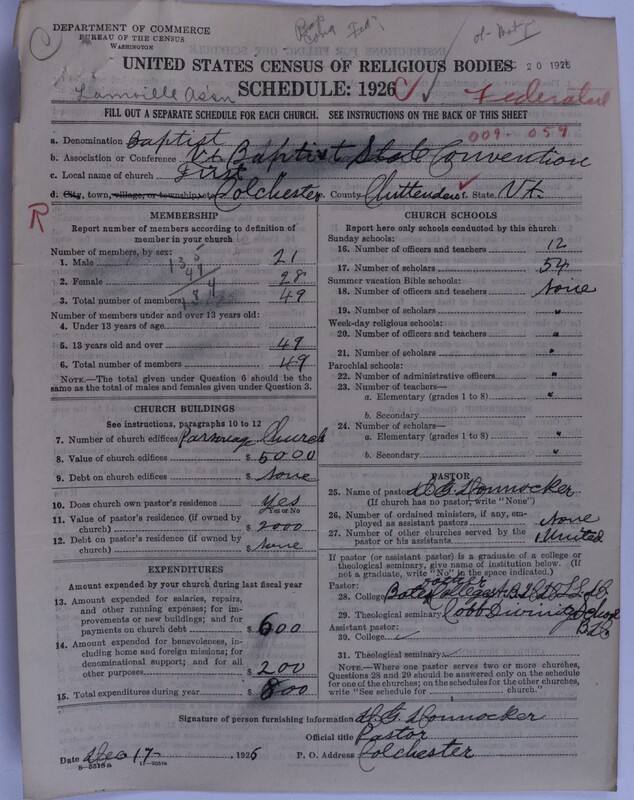 DEPARTMENT OF COMMERCE
BUREAU OF THE CENSUS
WASHINGTON
UNITED STATES CENSUS OF RELIGIOUS BODIES
20 1926
SCHEDULE: 1926
Lamoille Ass'n
Federated
FILL OUT A SEPARATE SCHEDULE FOR EACH CHURCH. SEE INSTRUCTIONS ON THE BACK OF THIS SHEET
009-059
a. Denomination Baptist
b. Association or Conference Vt Baptist State Convention
c. Local name of church First
d. City, town, village, or township, etc. Colchester County Chittenden State Vt.
R
MEMBERSHIP
Report number of members according to definition of member in your church
Number of members, by sex:
1. Male 21
2. Female 28
3. Total number of members 49
Number of members under and over 13 years old:
4. Under 13 years of age
5. 13 years old and over 49
6. Total number of members 49
NOTE.—The total given under Question 6 should be the same as the total of males and females given under Question 3.
CHURCH BUILDINGS
See instructions, paragraphs 10 to 12
7. Number of church edifices Parsonage Church
8. Value of church edifices $ 5000
9. Debt on church edifices $ None
10. Does church own pastor's residence Yes
Yes or No
11. Value of pastor's residence (if owned by church) $ 2000
12. Debt on pastor's residence (if owned by church) $ None
EXPENDITURES
Amount expended by your church during last fiscal year
13. Amount expended for salaries, repairs, and other running expenses; for improvements or new buildings; and for payments on church debt $ 600
14. Amount expended for benevolences, including home and foreign missions; for denominational support; and for all other purposes $ 200
15. Total expenditures during year $ 800
CHURCH SCHOOLS
Report here only schools conducted by this church
Sunday schools:
16. Number of officers and teachers 12
17. Number of scholars 54
Summer vacation Bible schools:
18. Number of officers and teachers None
19. Number of scholars "
Week-day religious schools:
20. Number of officers and teachers "
21. Number of scholars "
Parochial schools:
22. Number of administrative officers "
23. Number of teachers—
a. Elementary (grades 1 to 8) "
b. Secondary
24. Number of scholars—
a. Elementary (grades 1 to 8) "
b. Secondary "
PASTOR
25. Name of pastor
(If church has no pastor, write "None")
26. Number of ordained ministers, if any, employed as assistant pastors None
27. Number of other churches served by the pastor or his assistants United
If pastor (or assistant pastor) is a graduate of a college or theological seminary, give name of institution below. (If not a graduate, write "No" in the space indicated.)
Pastor:
28. College Bates College
29. Theological seminary Cobb Divinity School
Assistant pastor:
30. College
31. Theological seminary
NOTE.—Where one pastor serves two or more churches, Questions 28 and 29 should be answered only on the schedule for one of the churches; on the schedules for the other churches, write "See schedule for church."
Signature of person furnishing information
Official title Pastor
Date Dec 17, 1926
P. O. Address Colchester